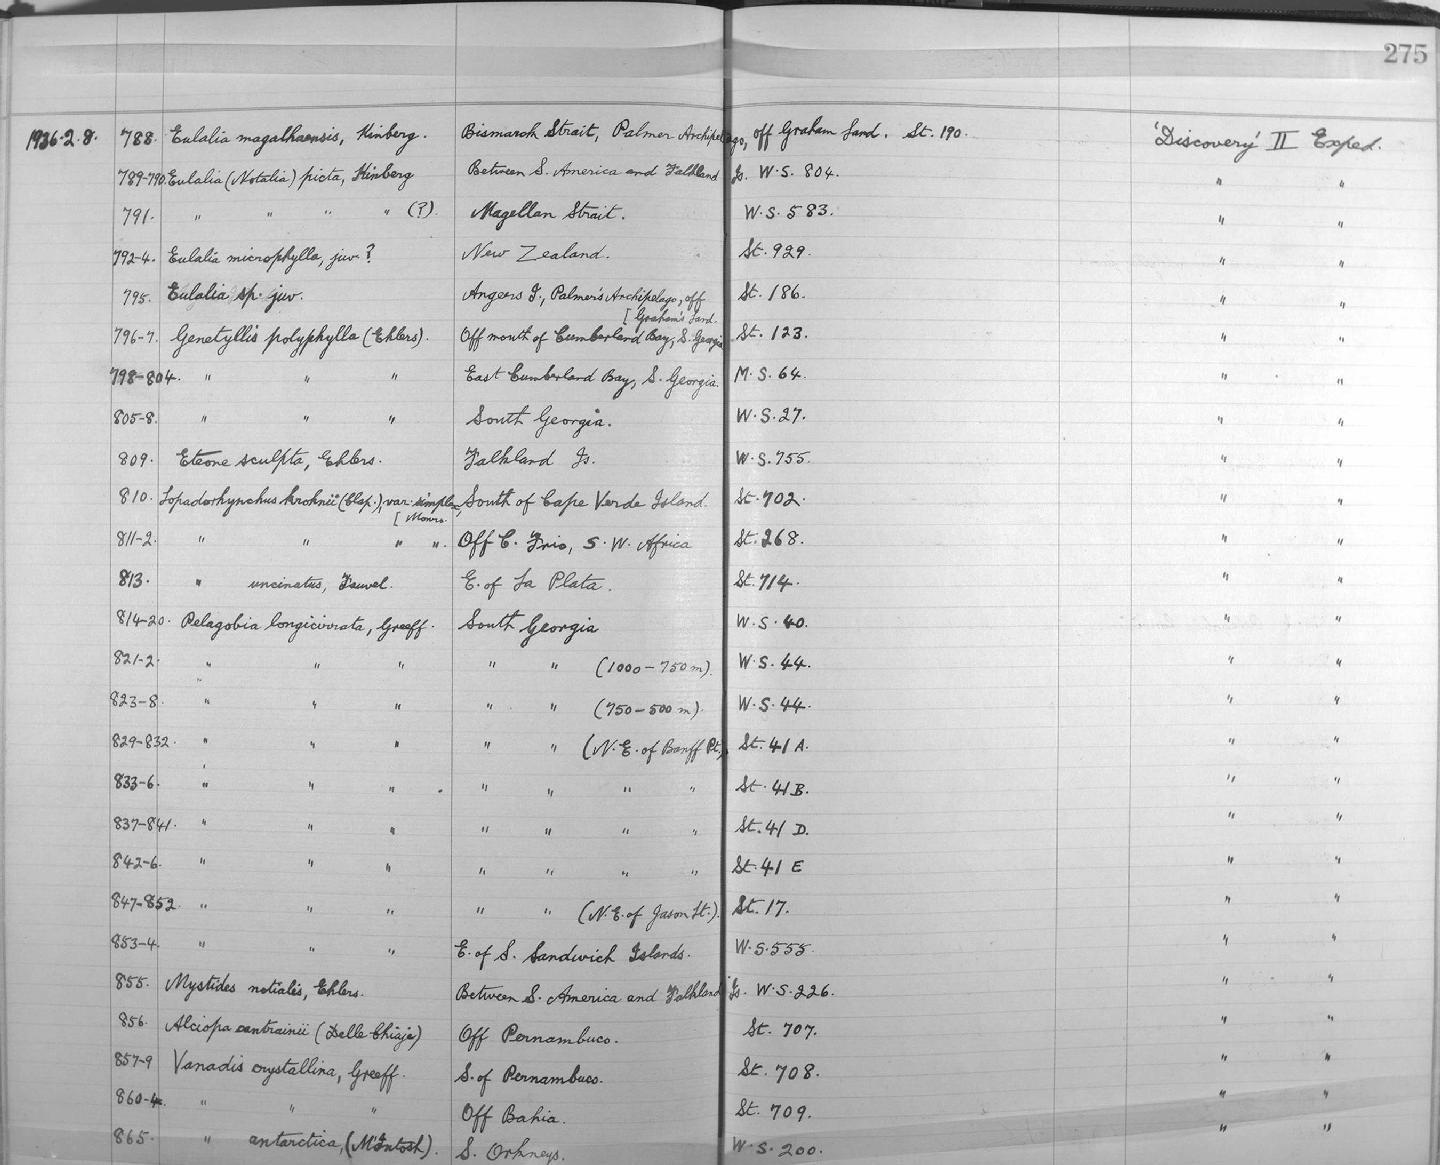 275
1936.2.8. 788. Eulalia magalhaensis, Kinberg. Bismarck Strait, Palmer Archipelago, off Graham Land. St. 190. 'Discovery' II Exped.
789-790. Eulalia (Notalia) picta, Kinberg Between S. America and Falkland Is. W.S. 804. " "
791. " " " " (?). Magellan Strait. W.S. 583. " "
792-4. Eulalia microphylla, juv.? New Zealand. St. 929. " "
795. Eulalia sp. juv. Angers I., Palmer's Archipelago, off St. 186. " "
[Graham's Land.
796-7. Genetyllis polyphylla (Ehlers). Off mouth of Cumberland Bay, S. Georgia St. 123. " "
798-804. " " " East Cumberland Bay, S. Georgia. M.S. 64. " "
805-8. " " " South Georgia. W.S. 27. " "
809. Eteone sculpta, Ehlers. Falkland Is. W.S. 755. " "
810. Lopadorhynchus krohnii (Clap.), var. simplex, South of Cape Verde Island. St. 702. " "
[Monro.
811-2. " " " ". Off C. Frio, S.W. Africa St. 268. " "
813. " uncinatus, Fauvel. E. of La Plata. St. 714. " "
814-20. Pelagobia longicirrata, Greeff. South Georgia W.S. 40. " "
821-2. " " " " " (1000-750 m). W.S. 44. " "
823-8. " " " " " (750-500 m). W.S. 44. " "
829-832. " " " " " (N.E. of Banff Pt.), St. 41 A. " "
833-6. " " " " " " " St. 41 B. " "
837-841. " " " " " " " St. 41 D. " "
842-6. " " " " " " " St. 41 E " "
847-852. " " " " " (N.E. of Jason Lt.). St. 17. " "
853-4. " " " E. of S. Sandwich Islands. W.S. 555. " "
855. Mystides notialis, Ehlers. Between S. America and Falkland Is. W.S. 226. " "
856. Alciopa cantrainii (Delle Chiaje) Off Pernambuco. St. 707. " "
857-9 Vanadis crystallina, Greeff. S. of Pernambuco. St. 708. " "
860-4. " " " Off Bahia. St. 709. " "
865. " antarctica, (McIntosh). S. Orkneys. W.S. 200. " "